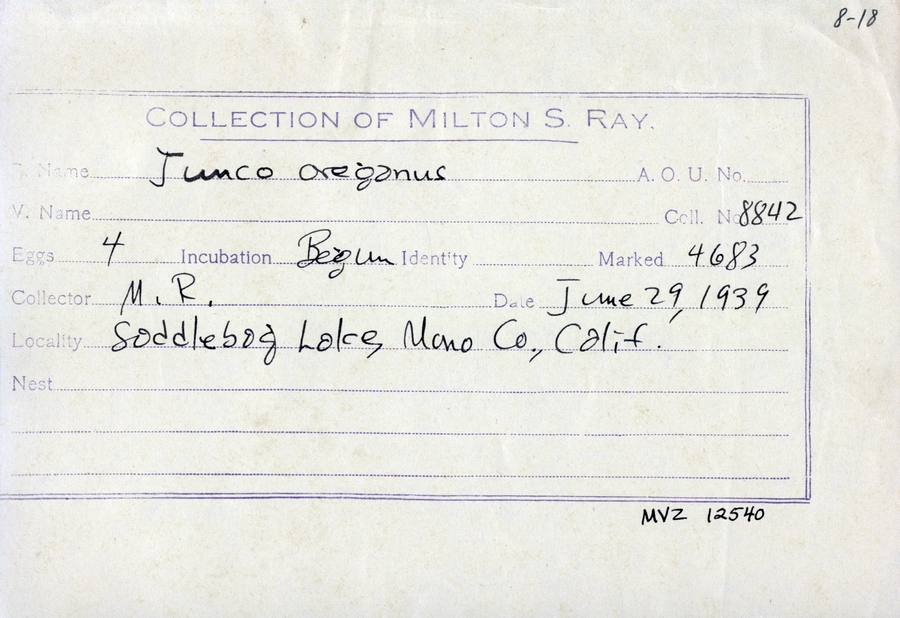 8-18
COLLECTION OF MILTON S. RAY.
S. Name Junco oreganus A. O. U. No.
V. Name Coll. No 8842
Eggs 4 Incubation Begun Identity Marked 4683
Collector M. R. Date June 29, 1939
Locality Saddlebag Lake, Mono Co., Calif.
Nest
MVZ 12540